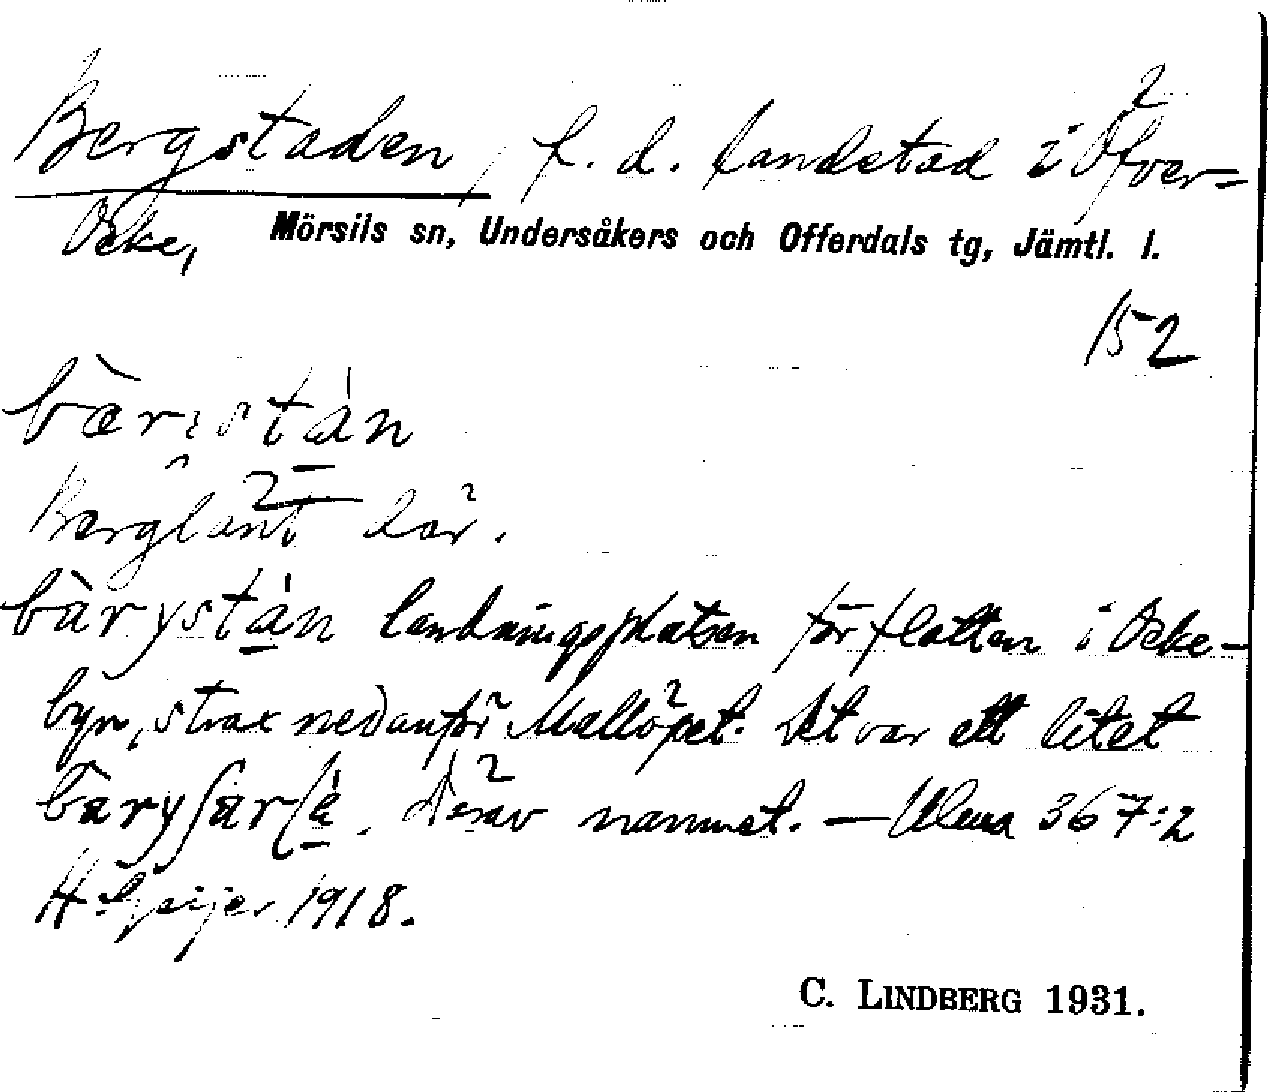 Bergstaden, f. d. landstad i Över-
Ocke, Mörsils sn, Undersåkers och Offerdals tg, Jämtl. l.
152
bær stán
Berglänt där.
bàrystán landningsplatsen för flotten i Ocke-
byn, strax nedanför Mallöpet. Det var ett litet
därav namnet. — Ulma 367:2
H. Geijer 1918.
C. LINDBERG 1931.